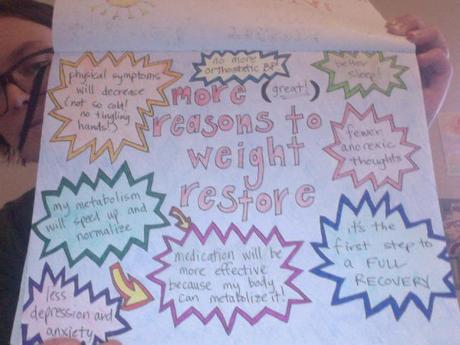 physical symptoms
will decrease
(not so cold!
no tingling
hands!)
no more
orthostatic BP!
better
sleep!
more (great!)
reasons to
weight
restore
fewer
anorexic
thoughts
my metabolism
will speed up and
normalize
medication will be
more effective
because my body
can metabolize it!
it's the
first step to
a FULL
RECOVERY
less
depression and
anxiety